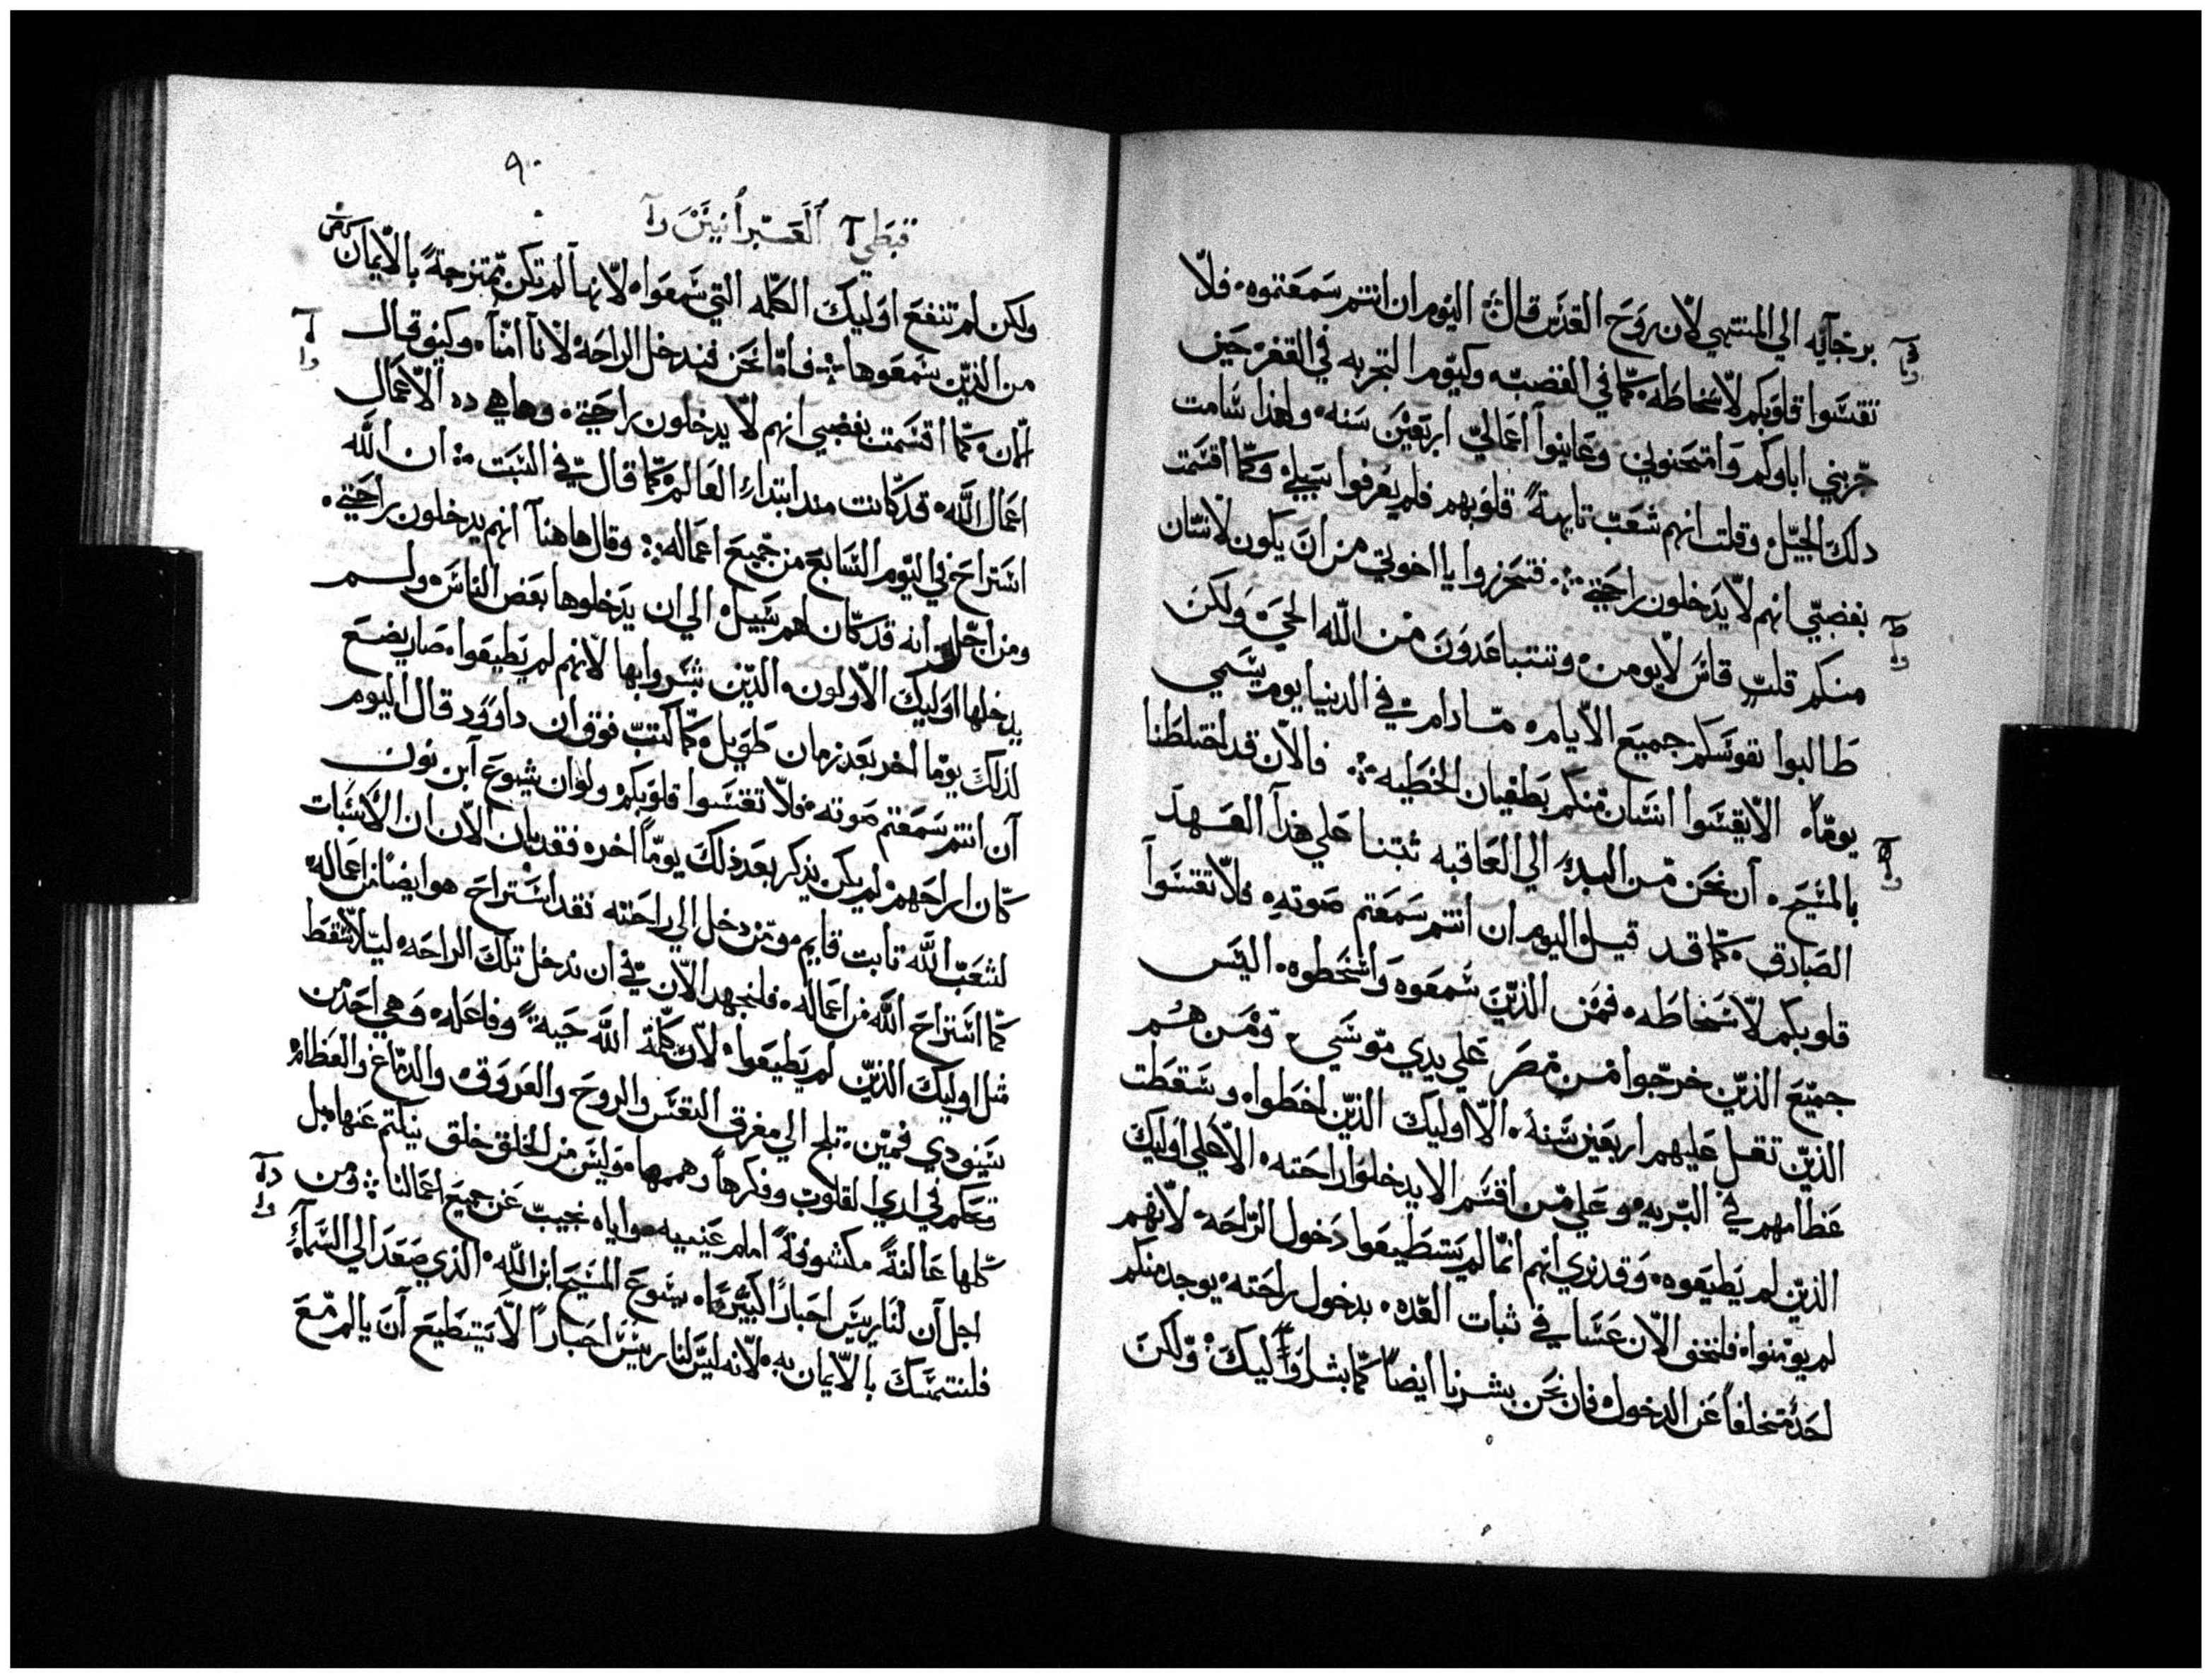 برجآيه الي المنتهي لان روح القدس قال اليوم ان انتم سمعتموه فلا
تقسوا قلوبكم لاسخاطه كما في الغضبه وكيوم التجربه في القفر حين
جربني اباوكم وامتحنوني وعاينوا اعمالي اربعين سنه ولهذا شامت
دلك الجيل وقلت انهم شعب تايهة قلوبهم فلم يعرفوا سبيلي وكما اقسمت
بغضبي انهم لا يدخلون راحتي فتحرزوا يا اخوتي من ان يكون لانسان
منكم قلب قاس لا يومن وتتباعدون من الله الحي ولكن
طالبوا نفوسكم جميع الايام ما دام في الدنيا يوم يسمي
يوما الا يقسوا انسان منكم بطغيان الخطيه فالان قد اختلطنا
بالمسيح ان نحن من البدء الي العاقبه ثبتنا علي هدا العهد
الصادق كما قد قيل اليوم ان انتم سمعتم صوته فلا تقسوا
قلوبكم لاسخاطه فمن الذين سمعوه واسخطوه اليس
جميع الذين خرجوا من مصر علي يدي موسي ومن هم
الذين تقل عليهم اربعين سنة الا اوليك الذين اخطوا وسقطت
عظامهم في البريه وعلي من اقسم الا يدخلوا راحته الا علي اوليك
الذين لم يطيعوه وقد نري انهم انما لم يستطيعوا دخول الراحة لانهم
لم يومنوا فلنخف الان عسا في ثبات العده بدخول راحته يوجد منكم
احد متخلفا عن الدخول فان نحن بشرنا ايضا كما بشر اوليك ولكن
٩٠
قبطي العبرانيين
ولكن لم تنفع اوليك الكلمه التي سمعوا لانها لم تكن ممتزجة بالايمان
من الذين سمعوها فاما نحن فندخل الراحة لاننا امنا وكيف قال
الان كما اقسمت بغضبي انهم لا يدخلون راحتي وها هي ده الاعمال
اعمال الله قد كانت مند ابتداء العالم كما قال في السبت ان الله
استراح في اليوم السابع من جميع اعماله وقال هاهنا انهم يدخلون راحتي
ومن اجل انه قد كان لهم سبيل الي ان يدخلوها بعض الناس ولم
يدخلها اوليك الاولون الذين بشروا بها لانهم لم يطيعوا صار يضع
لذلك يوما اخر بعد زمان طويل كما كتب فوق ان داوود قال اليوم
ان انتم سمعتم صوته فلا تقسوا قلوبكم ولو ان يشوع ابن نون
كان اراحهم لم يكن يذكر بعد ذلك يوما اخر فقد بان الان ان الاسبات
لشعب الله تابت قايم ومن دخل الي راحته فقد استراح هو ايضا من اعماله
كما استراح الله من اعماله فلنجهد الان في ان ندخل تلك الراحه ليلا نسقط
مثل اوليك الذين لم يطيعوا لان كلمة الله حية وفاعله وهي احد من
سيف ذي فمين تلج الي مفرق النفس والروح والعروق والدماغ والعظام
تحكم في اري القلوب وفكرها وهمها وليس من الخلق خلق ينكتم عنها بل
كلها عالنة مكشوفة امام عينيه واياه نجيب عن جميع اعمالنا ومن
اجل ان لنا رييس احبارا كبيرا يسوع المسيح ابن الله الذي صعد الي السماء
فلنتمسك بالايمان به لانه ليس لنا رييس احبارا لا يستطيع ان يالم مع